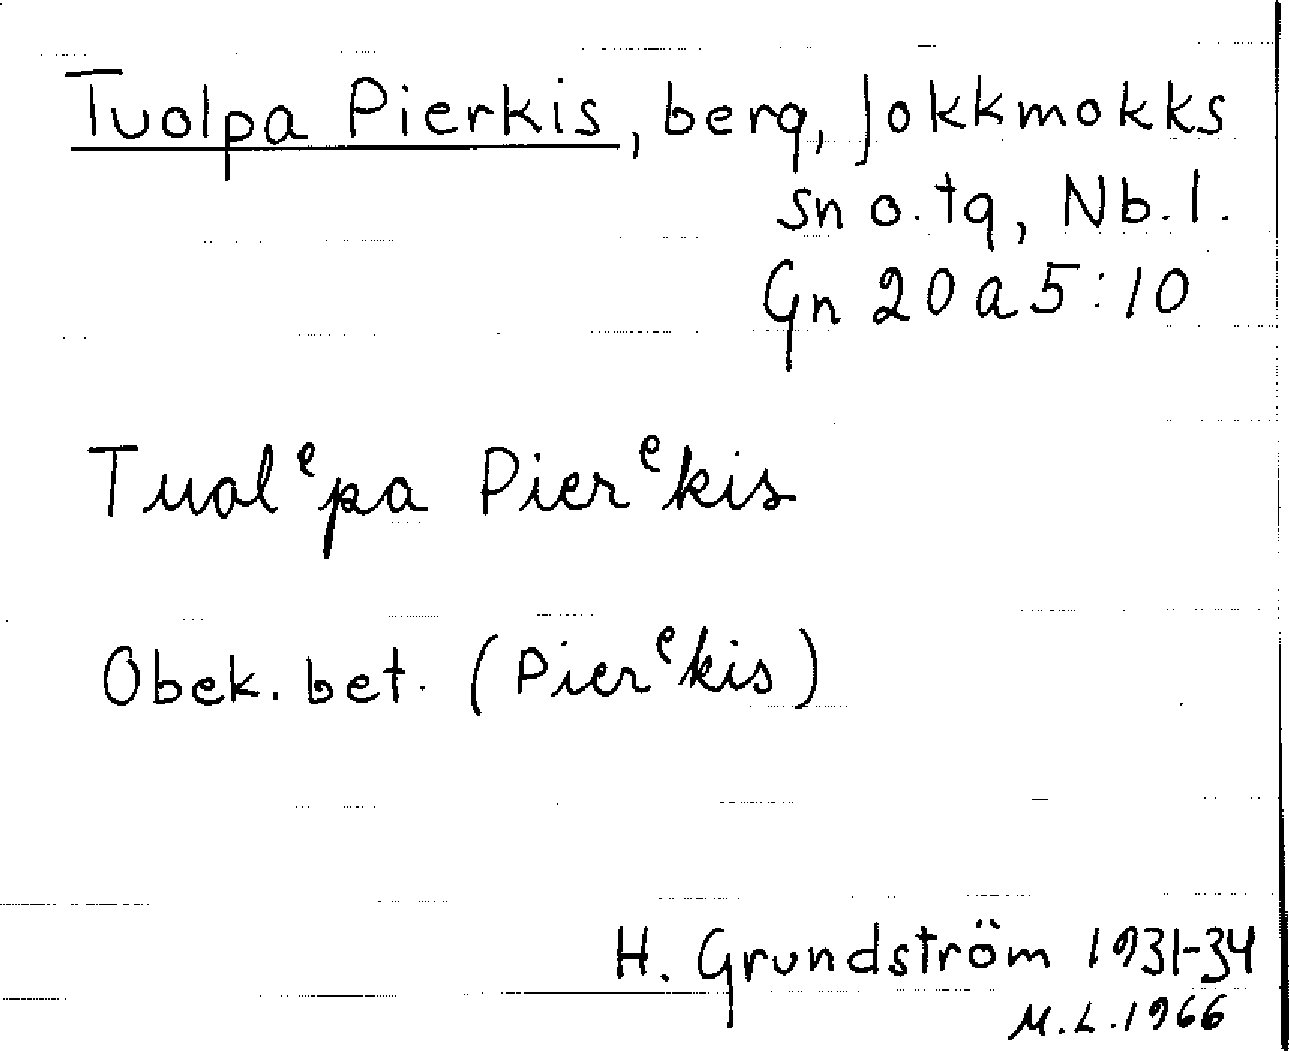 Tuolpa Pierkis, berg, Jokkmokks
sn o. tg, Nb. l.
Gn 20 a 5:10
Tualᵉpa Pierᵉkis
Obek. bet. (Pierᵉkis)
H. Grundström 1931-34
M.L. 1966